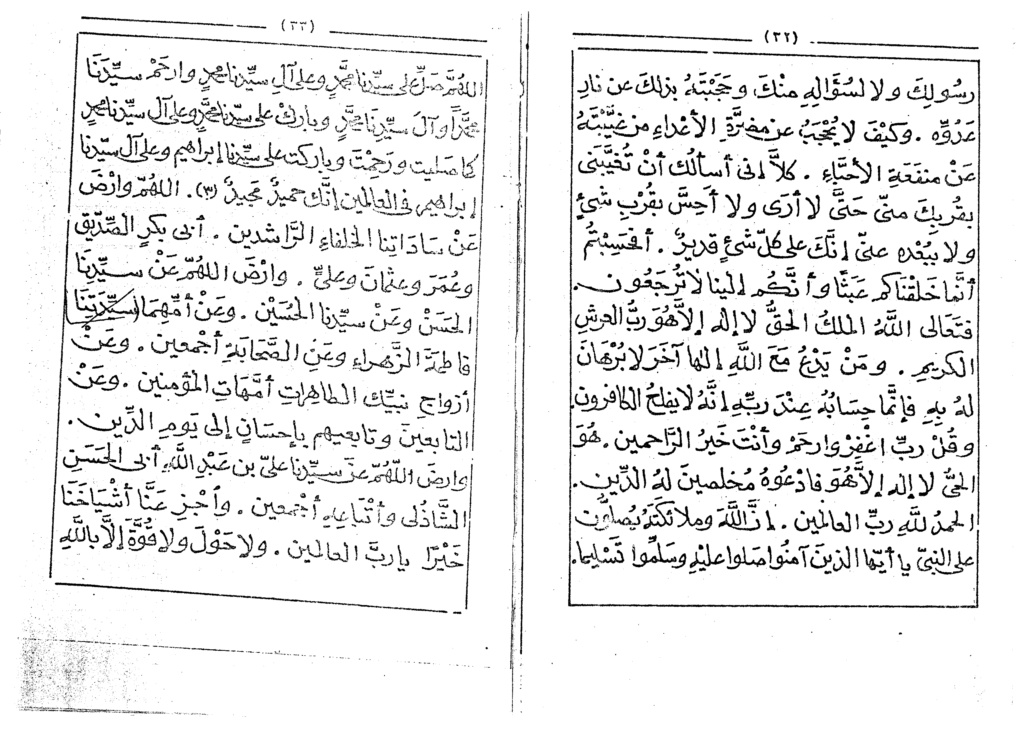 (٣٢)
رسُولِكَ ولا لسُؤَالِهِ مِنْكَ، وحَجَبْتَهُ بذلكَ عن نارِ
عَدُوِّه . وكَيْفَ لا يُحْجَبُ عن مضَرَّةِ الأعْداءِ من غَيَّبْتَهُ
عَنْ منفَعَةِ الأحبَّاءِ . كلاَّ إنى أسألك أنْ تُغيِّبَنى
بقُربِكَ منىّ حَتَّى لا أرَى ولا أحِسّ بقُرْبِ شئٍ
ولا ببُعْدِه عنىّ إنَّكَ على كلّ شئ قديرٌ . أفحَسِبْتُم
أنَّما خلقْناكم عَبَثًا وأنَّكُم إلينا لا تُرجَعُون .
فتَعالى اللَّهُ الملكُ الحَقُّ لا إلَه إلاَّ هُوَ ربُّ العرشِ
الكريمِ . ومَنْ يَدْعُ مَعَ اللَّهِ إلهًا آخَرَ لا بُرْهَانَ
لهُ بِهِ فإنَّما حِسَابُهُ عِنْدَ ربِّهِ إنَّهُ لا يفلحُ الكافرون .
وقُلْ ربِّ اغْفِرْ وارحَمْ وأنتَ خَيْرُ الرَّاحمين . هُوَ
الحىُّ لا إله إلاَّ هُوَ فادْعُوهُ مُخلصينَ لهُ الدِّينَ .
الحمدُ للَّهِ ربِّ العالمين . إنَّ اللَّهَ وملائكتَهُ يُصلُّونَ
على النبىّ يا أيّها الذينَ آمنُوا صَلوا عليْهِ وسلِّموا تَسْليما .
(٣٣)
اللهُمَّ صَلّ على سيّدِنا محمَّدٍ وعلى آلِ سيِّدِنا محمدٍ وارحَمْ سيِّدَنَا
محمّداً وآلَ سيِّدِنَا محمَّدٍ وبارِكْ على سيِّدنا محمَّدٍ وعلى آلِ سيِّدِنا محمدٍ
كما صَليت ورَحِمْتَ وباركت على سيِّدِنا إبراهيم وعلى آل سيّدِنا
إبراهيم فى العالمين إنَّك حميدٌ مجيدٌ (٣) . اللهُمَّ وارْضَ
عَنْ سَادَاتِنا الخُلفاءِ الرَّاشدين . أبى بكرٍ الصِّدِّيق
وعُمَرَ وعثمانَ وعلىٍّ . وارْضَ اللهُمَّ عَنْ سيِّدِنا
الحَسَنْ وعَنْ سيِّدنا الحُسَيْن . وعَنْ أمِّهمَا (سيِّدَتِنَا
فاطمةَ الزَّهراءِ وعَنِ الصَّحَابَةِ أجْمعين . وعَنْ
أزواجِ نبيِّك الطاهِراتِ أمَّهاتِ المُؤمنين . وعَنْ
التابعينَ وتابعيهم بإحسَانٍ إلى يومِ الدِّين .
وارضَ اللَّهُمّ عن سيِّدنا علىّ بن عَبْدِ اللَّهِ أبى الحَسَنِ
الشَّاذُلى وأتْبَاعِهِ أجْمعين . واجْزِ عَنَّا أشْيَاخَنَا
خَيْرًا يا ربَّ العالمين . ولا حَوْلَ ولا قُوَّةَ إلاَّ باللَّهِ